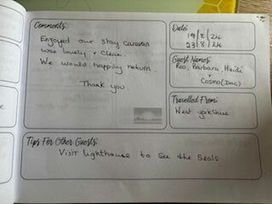 Comments:
Enjoyed our stay caravan
was lovely + clean
We would happily return
Thank you
Date:
19/8/24
23/8/24
Guest Names:
Barbara, Heidi
+
Cosmo (DOG)
Travelled From:
West Yorkshire
Tips For Other Guests:
Visit lighthouse to see the seals